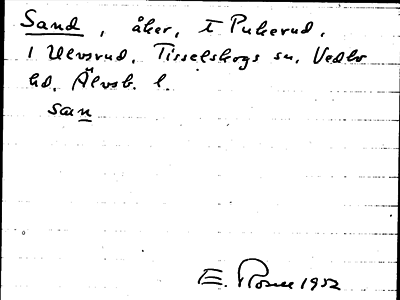 Sand, åker, t Pukerud,
i Ulvsrud, Tisselskogs sn, Vedbo
hd, Älvsb. l.
san
E. Rosell 1952